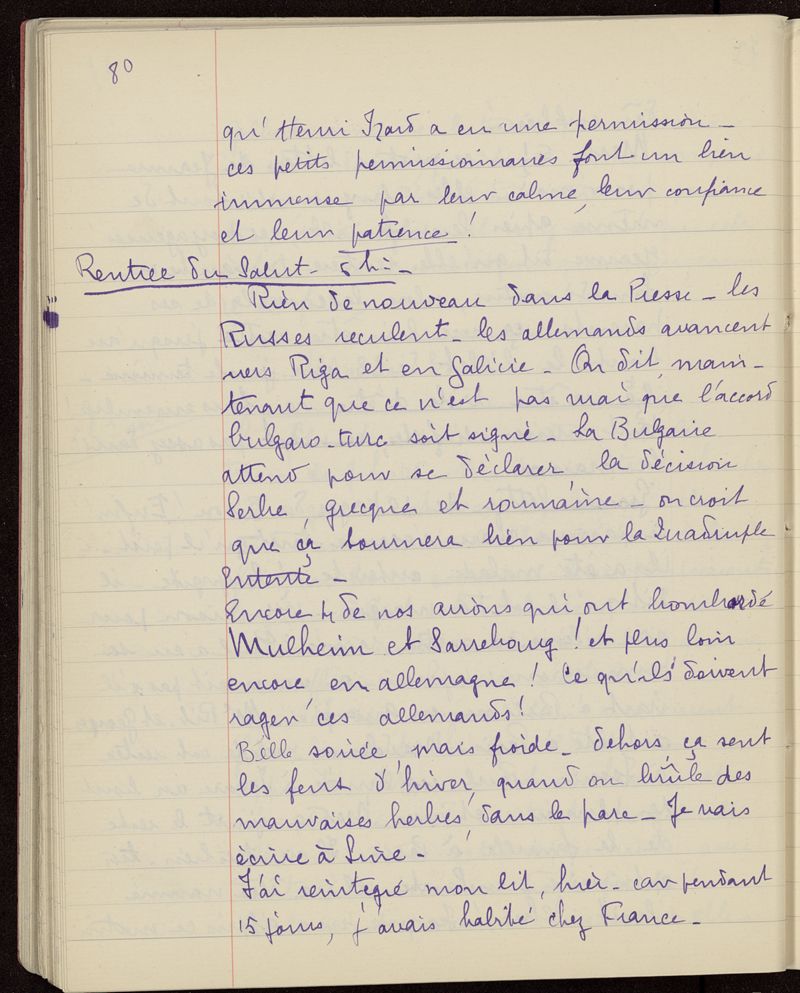 80
qu'Henri Izard a eu une permission –
ces petits permissionnaires font un bien
immense par leur calme, leur confiance
et leur patience !
Rentrée du Salut – 5h –
Rien de nouveau dans la Presse – les
Russes reculent – les allemands avancent
vers Riga et en Galicie – On dit, main-
tenant que ce n'est pas vrai que l'accord
bulgaro-turc soit signé – La Bulgarie
attend pour se déclarer la décision
Serbe, grecque et roumaine – on croit
que ça tournera bien pour la Quadruple
Entente –
Encore 4 de nos avions qui ont bombardé
Mulheim et Sarrebourg ! et plus loin
encore en allemagne ! Ce qu'ils doivent
rager ces allemands !
Belle soirée, mais froide – dehors, ça sent
les feux d'hiver, quand on brûle des
mauvaises herbes, dans le parc – Je vais
écrire à
J'ai réintégré mon lit, hier – car pendant
15 jours, j'avais habité chez France –